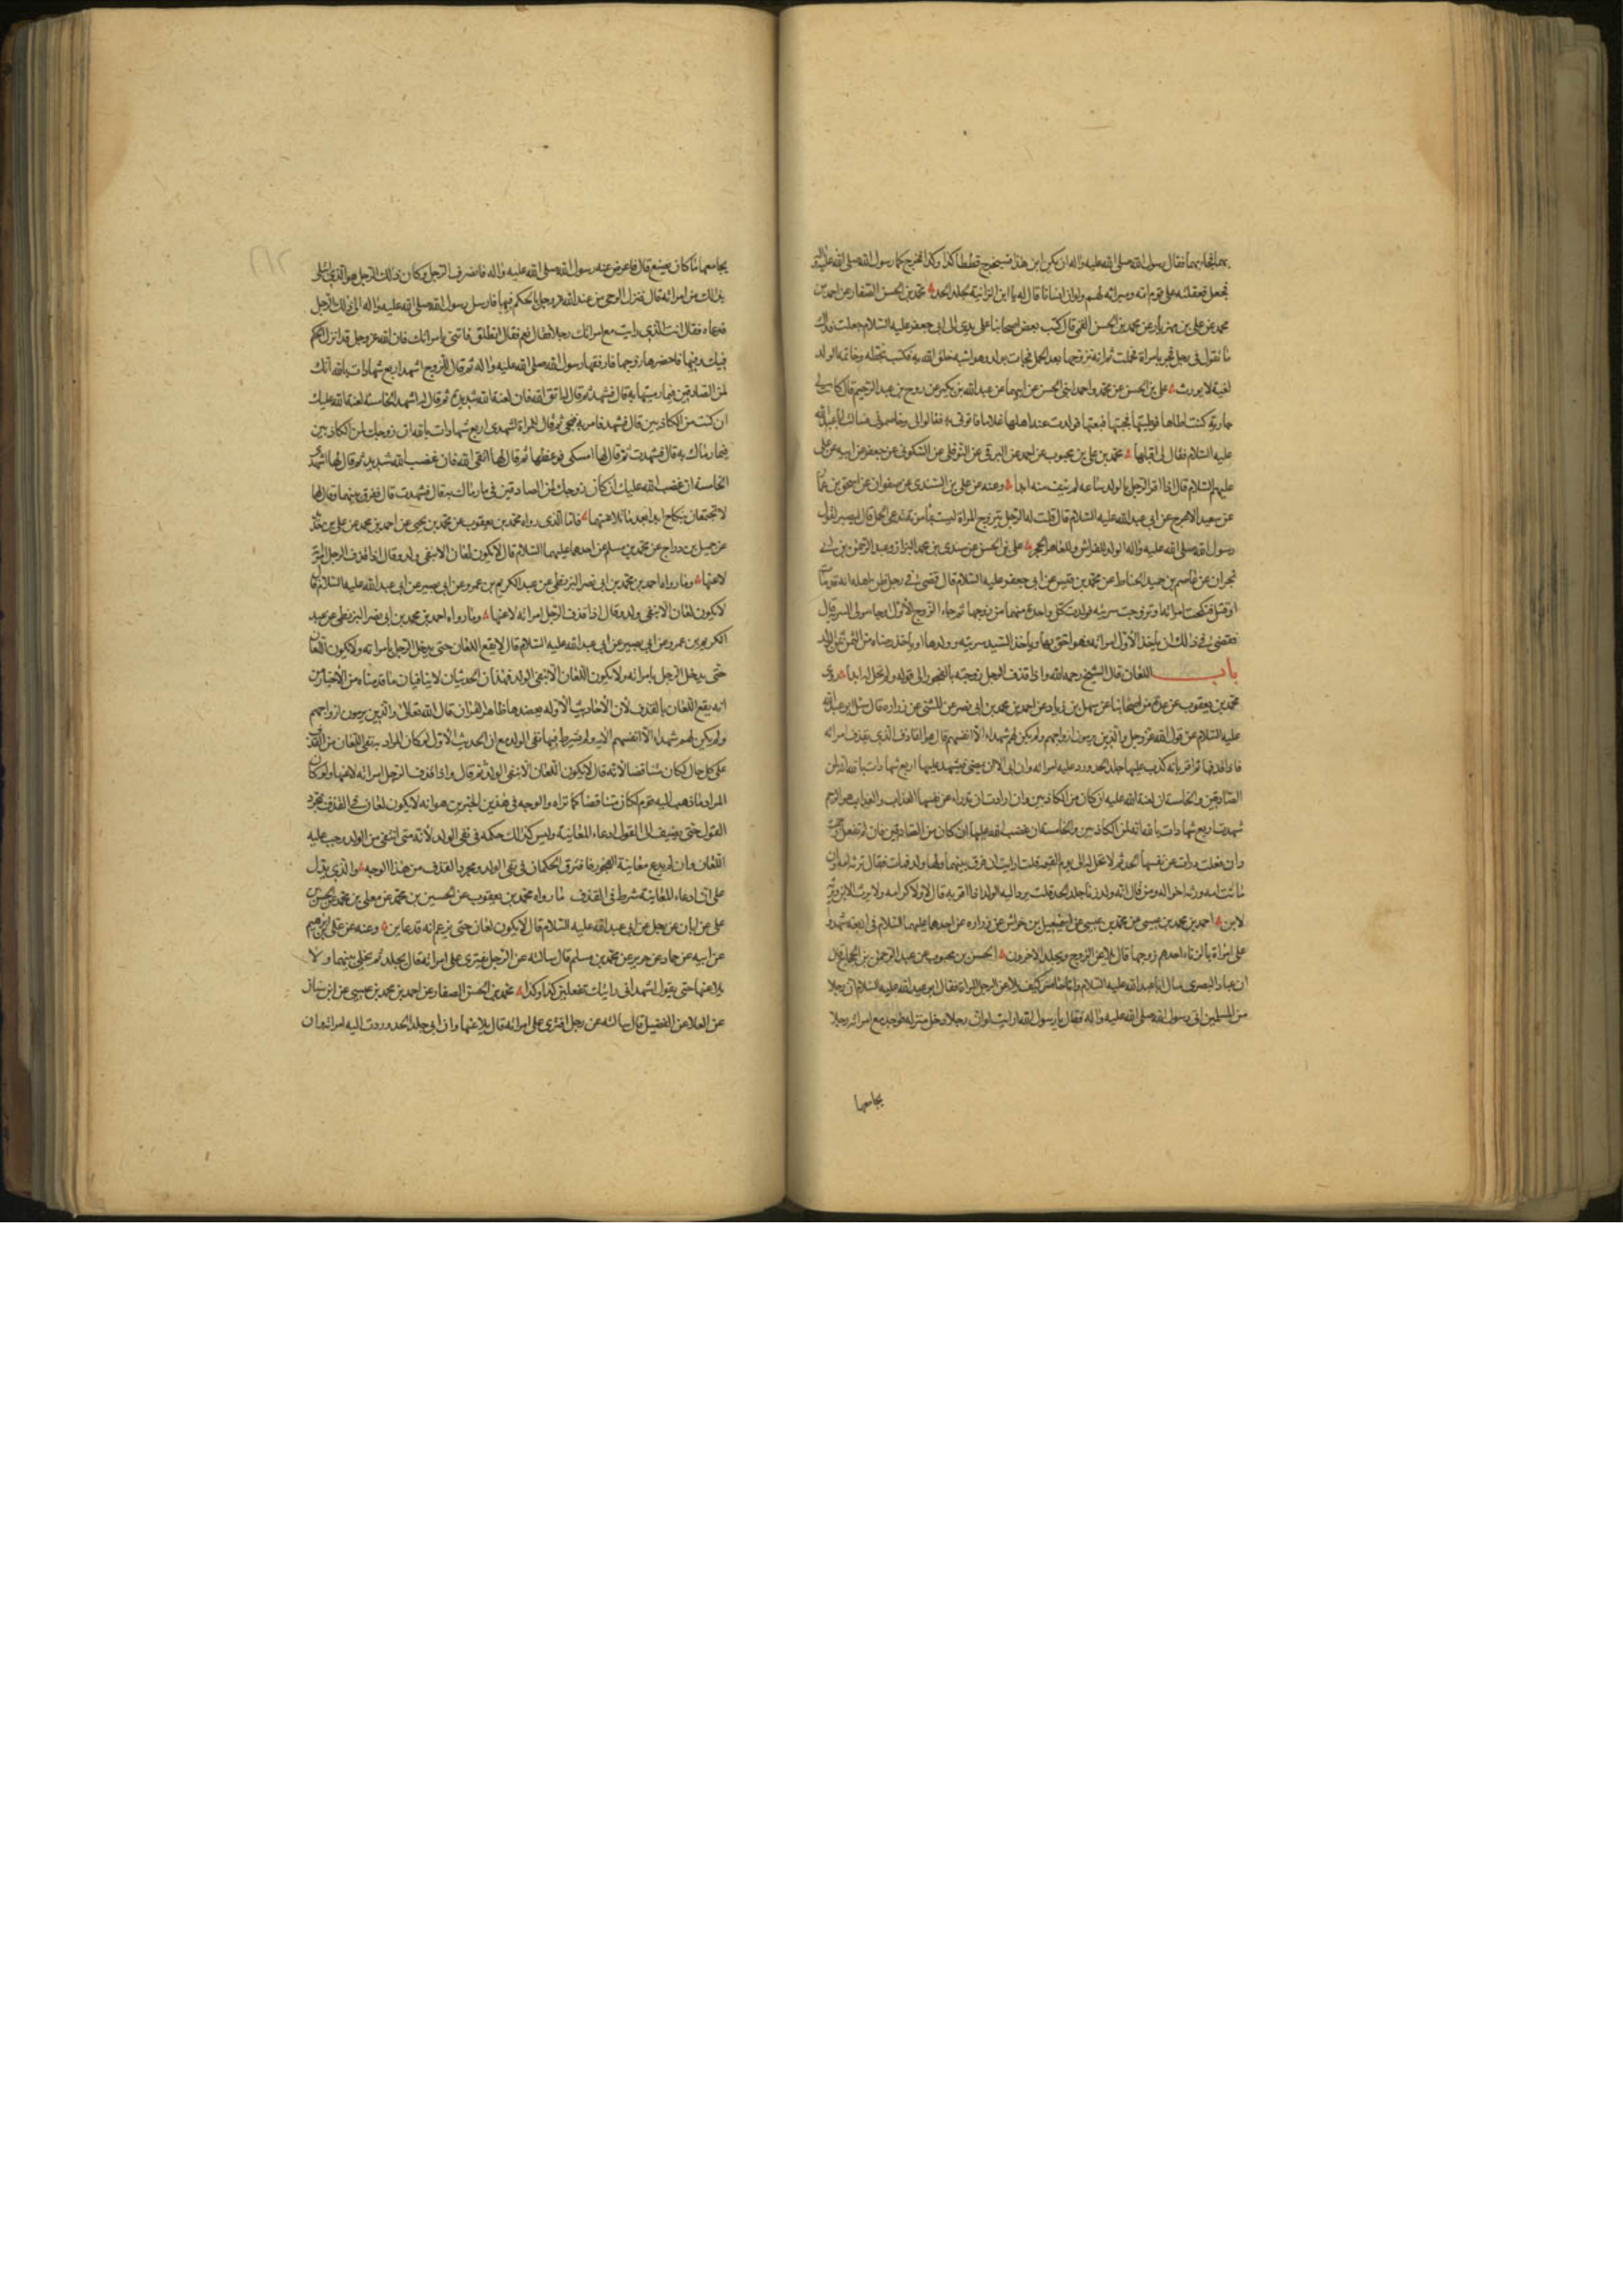 بهما بحاريهما فقال رسول الله صلى الله عليه واله ان يكن ابن هذا فسيخرج قططا كذا وكذا فخرج كما رسول الله صلى الله عليه واله
فجعل معقلته على قوم امه وميراثه لهم ولو ان انسانا قال له يا ابن الزانية يجلد الحد محمد بن الحسن الصفار عن احمد بن
محمد عن علي بن مهزيار عن محمد بن الحسن القمي قال كتب بعض اصحابنا على يدي الى ابي جعفر عليه السلام جعلت فداك
ما تقول في رجل فجر بامراة فحملت ثم انه تزوجها بعد الحمل فجاءت بولد وهو اشبه خلق الله به فكتب بخطه وخاتمه الولد
لغية لا يورث علي بن الحسن عن محمد واحمد ابني الحسن عن ابيهما عن عبد الله بن بكير عن روح بن عبد الرحيم قال كانت لي
جارية كنت اطاها فبعتها فولدت عند اهلها غلاما
عليه السلام فقال لي اقبلها محمد بن علي بن محبوب عن احمد عن البرقي عن النوفلي عن السكوني عن جعفر عن ابيه عن علي
عليهم السلام قال اذا اقر الرجل بالولد ساعة لم ينف منه ابدا وعنه عن علي بن السندي عن صفوان عن اسحق بن عمار
عن سعيد الاعرج عن ابي عبد الله عليه السلام قال قلت له الرجل يتزوج المراة ليست بمامونة تدعي الحمل قال ليصبر لقول
رسول الله صلى الله عليه واله الولد للفراش وللعاهر الحجر علي بن الحسن عن سندي بن محمد البزاز وعبد الرحمن بن ابي
نجران عن عاصم بن حميد الحناط عن محمد بن قيس عن ابي جعفر عليه السلام قال قضى في رجل ظن اهله انه قد مات
او قتل فنكحت امراته وتزوجت سريته فولدت كل واحدة منهما من زوجها ثم جاء الزوج الاول او جاء مولى السرية قال
فقضى في ذلك ان ياخذ الاول امراته فهو احق بها وياخذ السيد سريته وولدها او ياخذ رضاه من الثمن ثمن الولد
باب اللعان قال الشيخ رحمه الله واذا قذف الرجل زوجته بالفجور الى قوله ولم تحل له ابدا روى
محمد بن يعقوب عن عدة من اصحابنا عن سهل بن زياد عن احمد بن محمد بن ابي نصر عن المثنى عن زرارة قال سئل ابو عبد الله
عليه السلام عن قول الله عز وجل والذين يرمون ازواجهم ولم يكن لهم شهداء الا انفسهم قال هو القاذف الذي يقذف امراته
فاذا قذفها ثم اقر بانه كذب عليها جلد الحد وردت عليه امراته وان ابى الا ان يمضي فيشهد عليها اربع شهادات بالله انه لمن
الصادقين والخامسة ان لعنة الله عليه ان كان من الكاذبين وان ارادت ان تدرا عن نفسها العذاب والعذاب هو الرجم
شهدت اربع شهادات بالله انه لمن الكاذبين والخامسة ان غضب الله عليها ان كان من الصادقين فان لم تفعل رجمت
وان فعلت درات عن نفسها الحد ثم لا تحل له الى يوم القيمة قلت ارايت ان فرق بينهما ولها ولد فمات فقال ترثه امه وان
ماتت امه ورثه اخواله ومن قال انه ولد زنا جلد الحد قلت يرد اليه الولد اذا اقر به قال لا ولا كرامة ولا يرث الابن ويرثه
الابن احمد بن محمد بن عيسى عن محمد بن عيسى عن اسمعيل بن خراش عن زرارة عن احدهما عليهما السلام في اربعة شهدوا
على امراة بالزنا احدهم زوجها قال يلاعن الزوج ويجلد الاخرون الحسن بن محبوب عن عبد الرحمن بن الحجاج قال
ان عباد البصري سال ابا عبد الله عليه السلام وانا حاضر كيف يلاعن الرجل المراة فقال ابو عبد الله عليه السلام ان رجلا
من المسلمين اتى رسول الله صلى الله عليه واله فقال يا رسول الله ارايت لو ان رجلا دخل منزله فوجد مع امراته رجلا
يجامعها
يجامعها ما كان يصنع قال فاعرض عنه رسول الله صلى الله عليه واله فانصرف الرجل وكان ذلك الرجل هو الذي ابتلى
بذلك من امراته قال فنزل الوحي من عند الله عز وجل بالحكم فيها فارسل رسول الله صلى الله عليه واله الى ذلك الرجل
فدعاه فقال انت الذي رايت مع امراتك رجلا فقال نعم فقال انطلق فائتني بامراتك فان الله عز وجل قد انزل الحكم
فيك وفيها فاحضرها زوجها فاوقفها رسول الله صلى الله عليه واله ثم قال للزوج اشهد اربع شهادات بالله انك
لمن الصادقين فيما رميتها به قال فشهد ثم قال له اتق الله فان لعنة الله شديدة ثم قال له اشهد الخامسة لعنة الله عليك
ان كنت من الكاذبين قال فشهد فامر به فنحي ثم قال للمراة اشهدي اربع شهادات بالله ان زوجك لمن الكاذبين
فيما رماك به قال فشهدت ثم قال لها امسكي فوعظها ثم قال لها اتقي الله فان غضب الله شديد ثم قال لها اشهدي
الخامسة ان غضب الله عليك ان كان زوجك لمن الصادقين فيما رماك به قال فشهدت قال ففرق بينهما وقال لهما
لا تجتمعان بنكاح ابدا بعد ما تلاعنتما فاما الذي رواه محمد بن يعقوب عن محمد بن يحيى عن احمد بن محمد عن علي بن حديد
عن جميل بن دراج عن محمد بن مسلم عن احدهما عليهما السلام قال لا يكون لعان الا بنفي ولد وقال اذا قذف الرجل امراته
لاعنها وما رواه احمد بن محمد بن ابي نصر البزنطي عن عبد الكريم بن عمرو عن ابي بصير عن ابي عبد الله عليه السلام قال
لا يكون لعان الا بنفي ولد وقال اذا قذف الرجل امراته لاعنها وما رواه احمد بن محمد بن ابي نصر البزنطي عن عبد
الكريم بن عمرو عن ابي بصير عن ابي عبد الله عليه السلام قال لا يقع اللعان حتى يدخل الرجل بامراته ولا يكون اللعان
حتى يدخل الرجل بامراته ولا يكون اللعان الا بنفي الولد فهذان الحديثان لا ينافيان ما قدمناه من الاخبار من
انه يقع اللعان بالقذف لان الاحاديث الاولة يعضدها ظاهر القران قال الله تعالى والذين يرمون ازواجهم
ولم يكن لهم شهداء الا انفسهم الاية ولم يشرط فيها نفي الولد مع ان الحديث الاول لو كان المراد به نفي اللعان من القذف
على كل حال لكان متناقضا لانه قال لا يكون اللعان الا بنفي الولد ثم قال واذا قذف الرجل امراته لاعنها ولو كان
المراد ما ذهب اليه قوم لكان متناقضا كما تراه والوجه في هذين الخبرين هو انه لا يكون لعان في القذف بمجرد
القول حتى يضيف الى القول ادعاء المعاينة وليس كذلك حكمه في نفي الولد لانه متى انتفى من الولد وجب عليه
اللعان وان لم يدع معاينة الفجور فافترق الحكمان في نفي الولد ومجرد القذف من هذا الوجه والذي يدل
على ان ادعاء المعاينة شرط في القذف ما رواه محمد بن يعقوب عن الحسين بن محمد عن معلى بن محمد عن الحسن بن
علي عن ابان عن رجل عن ابي عبد الله عليه السلام قال لا يكون لعان حتى يزعم انه قد عاين وعنه عن علي بن ابرهيم
عن ابيه عن حماد عن حريز عن محمد بن مسلم قال سالته عن الرجل يفتري على امراته قال يجلد ثم يخلى بينهما ولا
يلاعنها حتى يقول اشهد اني رايتك تفعلين كذا وكذا محمد بن الحسن الصفار عن احمد بن محمد بن عيسى عن ابن سنان
عن العلا عن الفضيل قال سالته عن رجل افترى على امراته قال يلاعنها وان ابى جلد الحد وردت اليه امراته وان